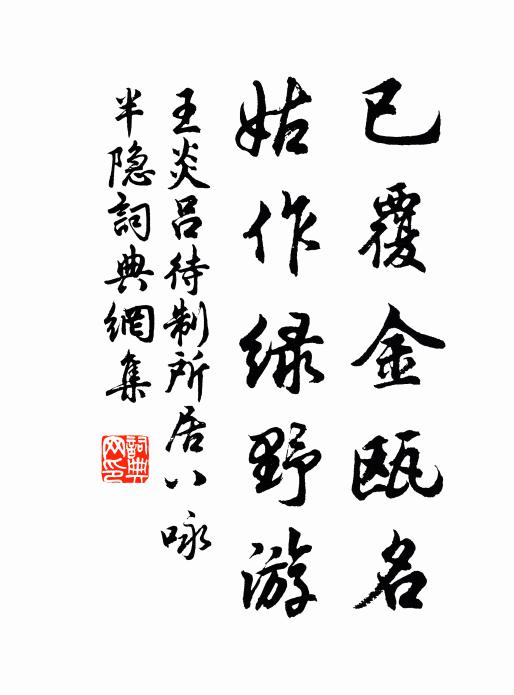 已覆金瓯名
姑作绿野游
王炎吕待制所居八咏
半隐詞典網集
詞典网印